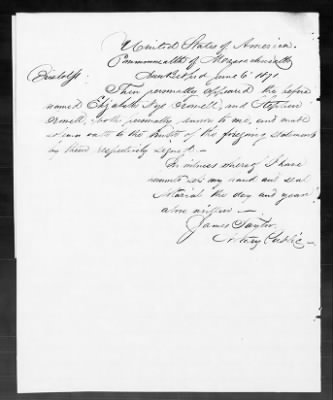 United States of America.
Commonwealth of Massachusetts
Bristol ss. New Bedford June 6th 1891.
Then personally appeared the before
named Elizabeth and Stephen
both personally known to me, and made
solemn oath to the truth of the foregoing statements
by them respectively signed. —
In witness whereof I have
hereunto set my hand and seal
Notarial the day and year
above written —
James Taylor
Notary Public —